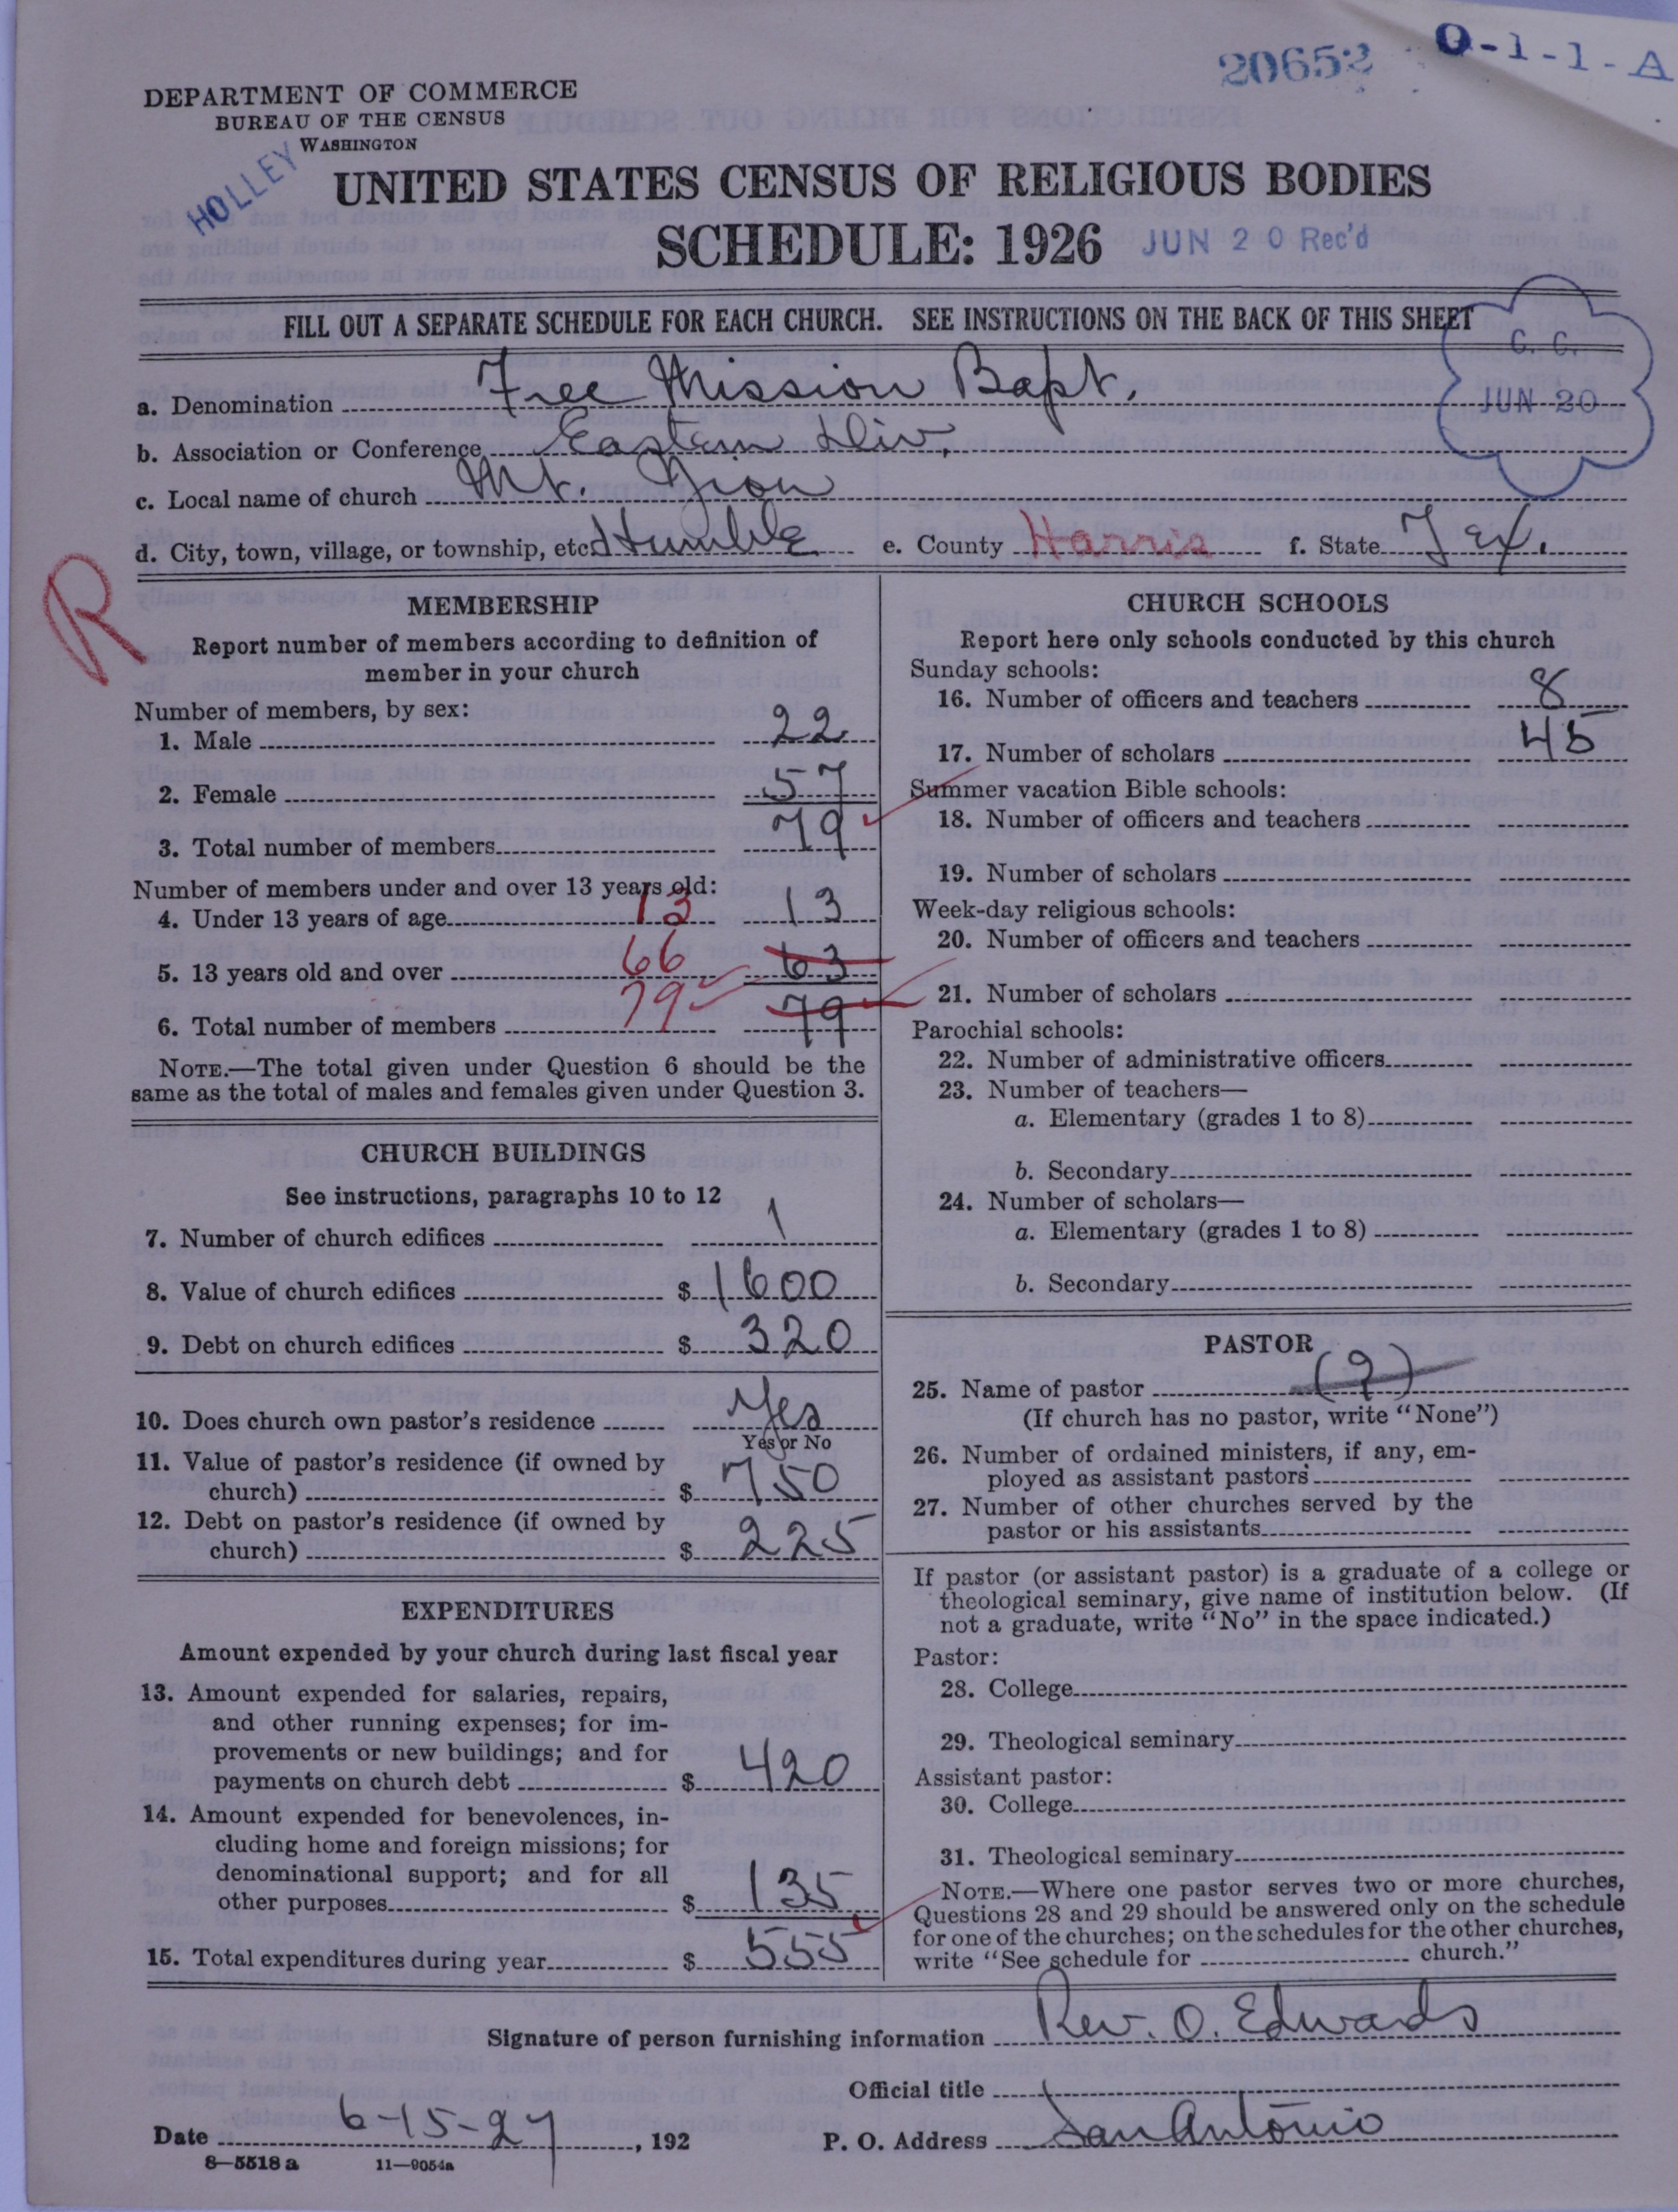 20652 O-1-1-A
DEPARTMENT OF COMMERCE
BUREAU OF THE CENSUS
WASHINGTON
HOLLEY
UNITED STATES CENSUS OF RELIGIOUS BODIES
SCHEDULE: 1926 JUN 20 Rec'd
FILL OUT A SEPARATE SCHEDULE FOR EACH CHURCH. SEE INSTRUCTIONS ON THE BACK OF THIS SHEET
C. C.
JUN 20
a. Denomination Free Mission Bapt.
b. Association or Conference Eastern Div.
c. Local name of church Mt. Zion
d. City, town, village, or township, etc. Humble e. County Harris f. State Tex.
R
MEMBERSHIP
Report number of members according to definition of
member in your church
Number of members, by sex:
1. Male 22
2. Female 57
3. Total number of members 79
Number of members under and over 13 years old:
4. Under 13 years of age 13 13
5. 13 years old and over 66 63
6. Total number of members 79 79
NOTE.—The total given under Question 6 should be the
same as the total of males and females given under Question 3.
CHURCH BUILDINGS
See instructions, paragraphs 10 to 12
7. Number of church edifices 1
8. Value of church edifices $ 1600
9. Debt on church edifices $ 320
10. Does church own pastor's residence Yes
Yes or No
11. Value of pastor's residence (if owned by
church) $ 750
12. Debt on pastor's residence (if owned by
church) $ 225
EXPENDITURES
Amount expended by your church during last fiscal year
13. Amount expended for salaries, repairs,
and other running expenses; for im-
provements or new buildings; and for
payments on church debt $ 420
14. Amount expended for benevolences, in-
cluding home and foreign missions; for
denominational support; and for all
other purposes $ 135
15. Total expenditures during year $ 555
CHURCH SCHOOLS
Report here only schools conducted by this church
Sunday schools:
16. Number of officers and teachers 8
17. Number of scholars 45
Summer vacation Bible schools:
18. Number of officers and teachers
19. Number of scholars
Week-day religious schools:
20. Number of officers and teachers
21. Number of scholars
Parochial schools:
22. Number of administrative officers
23. Number of teachers—
a. Elementary (grades 1 to 8)
b. Secondary
24. Number of scholars—
a. Elementary (grades 1 to 8)
b. Secondary
PASTOR
25. Name of pastor (?)
(If church has no pastor, write "None")
26. Number of ordained ministers, if any, em-
ployed as assistant pastors
27. Number of other churches served by the
pastor or his assistants
If pastor (or assistant pastor) is a graduate of a college or
theological seminary, give name of institution below. (If
not a graduate, write "No" in the space indicated.)
Pastor:
28. College
29. Theological seminary
Assistant pastor:
30. College
31. Theological seminary
NOTE.—Where one pastor serves two or more churches,
Questions 28 and 29 should be answered only on the schedule
for one of the churches; on the schedules for the other churches,
write "See schedule for church."
Signature of person furnishing information Rev. O. Edwards
Official title
Date 6-15-27, 192 P. O. Address San Antonio
8—5518 a 11—9054a